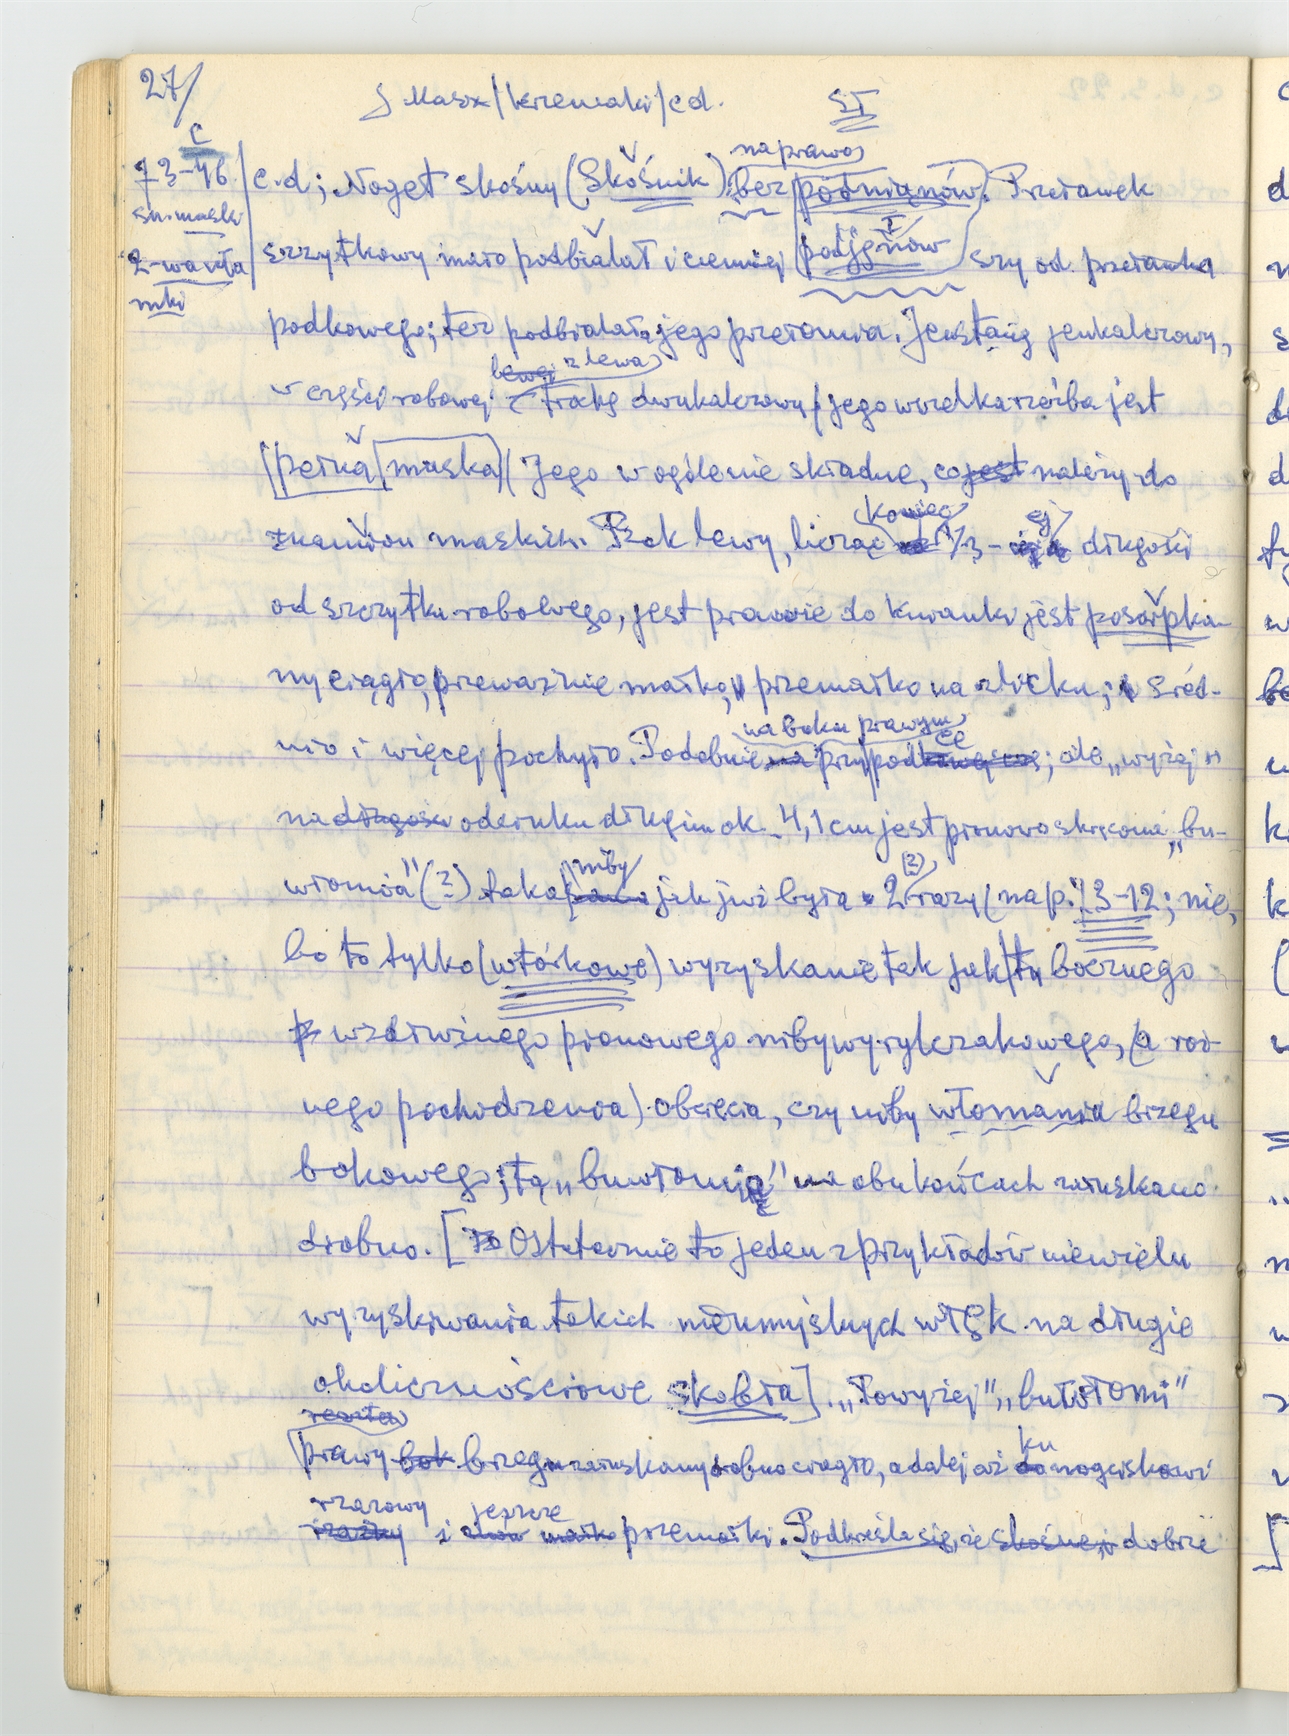 27/
J Masx/krzemaki/cd. ST
C
73-46
c.d; Noget skośny (Skośnik), bez naprawo półmiąnów. Przełamek
sn. maski
2-warsta
mki
szczytkowy mało podbialał i ciemniej podjęnów szy od przełamka
podkowego; też podbialała jego przełamia. Jest ang jenkalcrowy,
w części robowej lewej z lewa trochę dwukalcrowy / jego wzredka rzeźba jest
pełna maska / Jego w ogólenie składne, co jest należy do
znamion maskich. Bok lewy, licząc koniec 1/3-ej długości
od szczytku robolnego, jest prawie do kwanki jest posarpka-
ny ciągło, przeważnie małko, przemałko na zlicku; śred-
nio i więcej pochyło. Podobnie na boku prawym przy podkowęce; ale „wyżej"
na długości odcinku długim ok. 4,1 cm jest pionowo skręcona „bu-
włomia" (?) taka niby jak już była 2 (?) razy (nap. 73-12; nie,
bo to tylko (wtórkowe) wyzyskanie tak jak tu bocznego
wzdłużnego pionowego niby wyrylczakowego, (a roż-
nego pochodzenia) obcięcia, czy niby włomania brzegu
bokowego; tą „buwłomię" na obu końcach załuskano
drobno. [Ostatecznie to jeden z przykładów niewielu
wyzyskiwania takich nieumyślnych włęk na długie
okolicznościowe skobła]. „Powyżej" „butłomi"
reszta
prawy bok brzegu załuskany drobno ciągło, a dalej aż ku nogciskowi
rzazowy i jeszcze małko przemałki. Podkreśla się, że skośnej dobrze